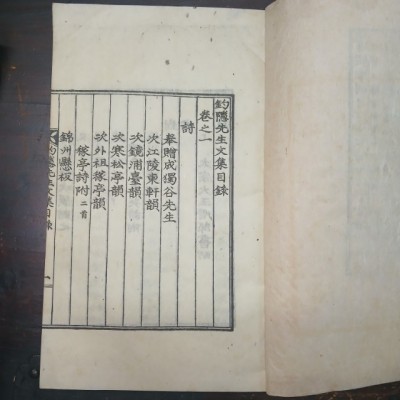 釣隱先生文集目錄
卷之一
詩
奉贈成獨谷先生
次江陵東軒韻
次鏡浦臺韻
次寒松亭韻
次外祖稼亭韻
稼亭詩附 二首
錦州懸板
釣隱先生文集目錄 一